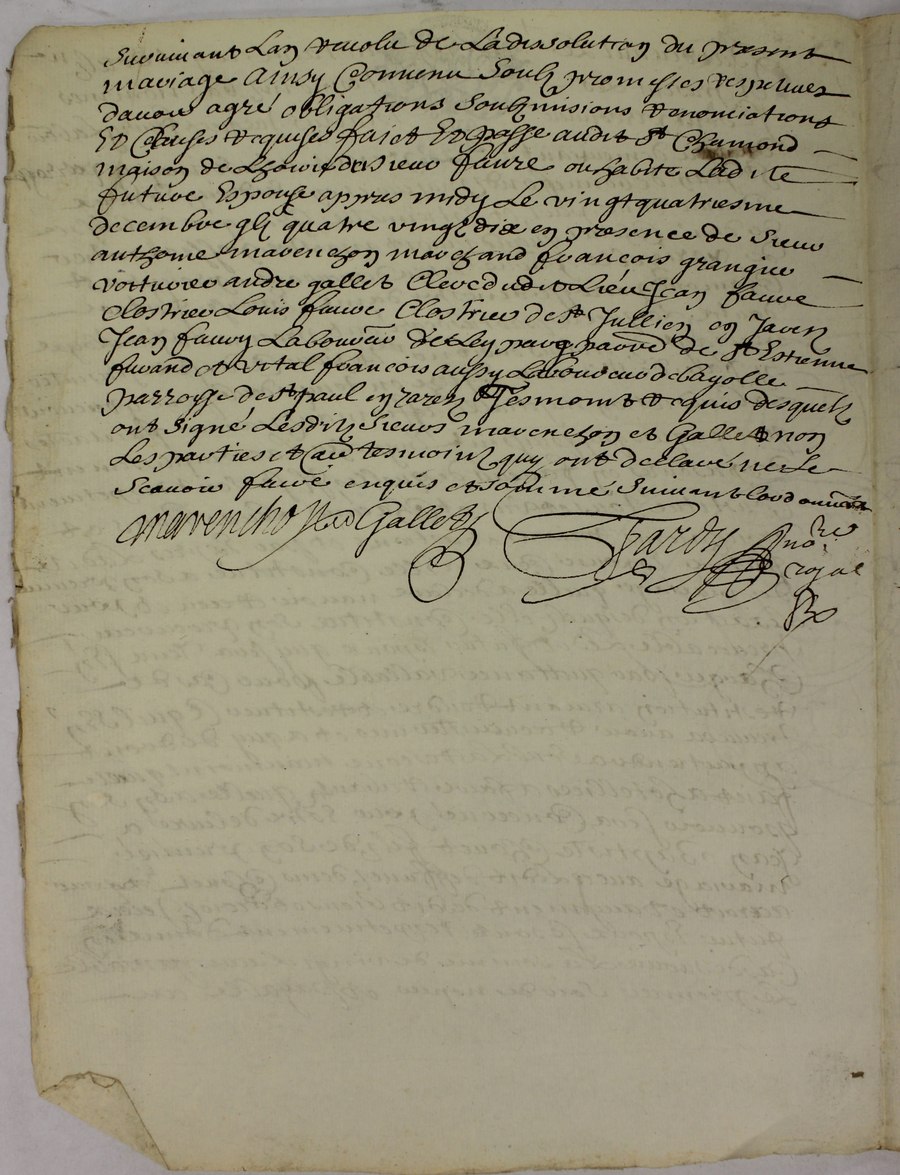 survivant Lan revolu de La dissolution du present
mariage Ainsy Convenu Soubz promesses respectives
davoir agré obligations Soubzmisions Renonciations
Et Clauses Requises faict Et passe audit St Chamond
maison de Sieur faure ou habite Ladite
future Espouse appres midy Le vingt quatriesme
decembre quatre vingt dix en presence de Sieur
anthoine marenchon marchand françois grangier
voiturier andre gallet Clerc dudit Lieu Jean faure
Clostrier Louis faure Clostrier de St Jullien en Jarez
Jean faury Laboureur parroisse de St Estienne
furand et vital françois aussy Laboureur de bayolle
parroisse de St paul en Jarez Tesmoint Requis desquelz
ont signé Lesditz Sieurs marenchon et Gallet non
Les parties et autres tesmointz quy ont desclaré ne le
Scavoir faire enquis et sommé Suivant Lordonnance
Marenchon Gallet Hardy nore
royal